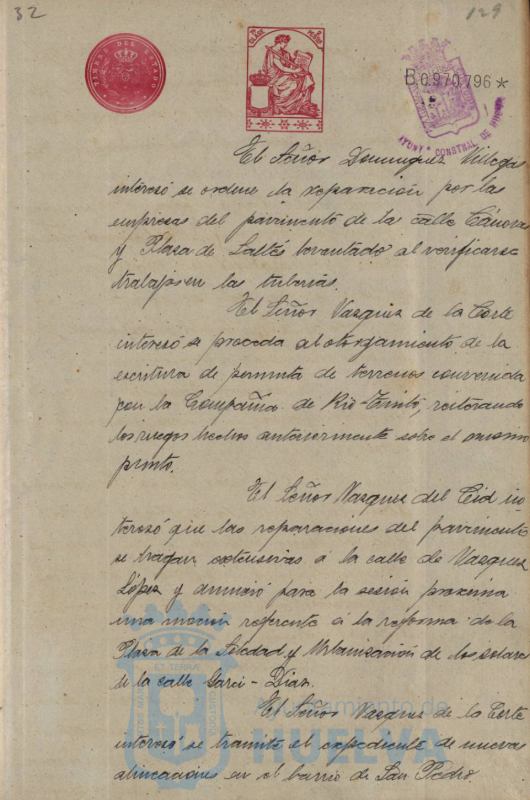 32
129
TIMBRE DEL ESTADO
B0.970.796*
AYUNTº CONSTNAL DE HUELVA
El Señor Dominguez Villegas
interesó se ordene la reparación por las
empresas del pavimento de la calle Cánovas
y Plaza de Saltés levantado al verificarse
trabajos en las tuberías.
El Señor Vazquez de la Corte
interesó se proceda al otorgamiento de la
escritura de permuta de terrenos convenida
con la Compañía de Rio-Tinto, reiterando
los ruegos hechos anteriormente sobre el mismo
punto.
El Señor Vazquez del Cid in-
teresó que las reparaciones del pavimento
se hagan extensivas á la calle de Vazquez
López y anunció para la sesión proxima
una moción referente á la reforma de la
Plaza de la Soledad y Urbanización de los solares
de la calle Garci-Diaz.
El Señor Vazquez de la Corte
interesó se tramite el expediente de nuevas
alineaciones en el barrio de San Pedro.
Ayuntamiento de
HUELVA